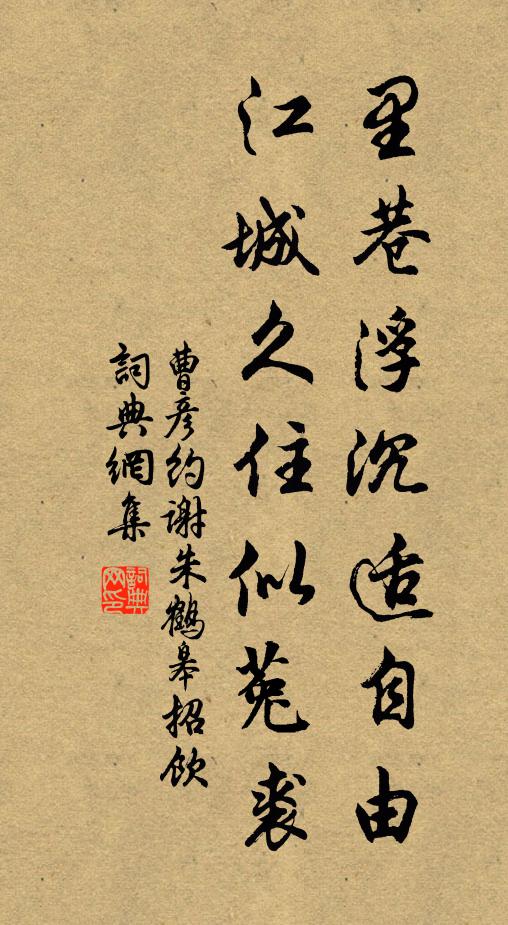 里巷浮沉适自由
江城久住似菟裘
曹彦约谢朱鶴皋招飲
詞典網集
詞典网印